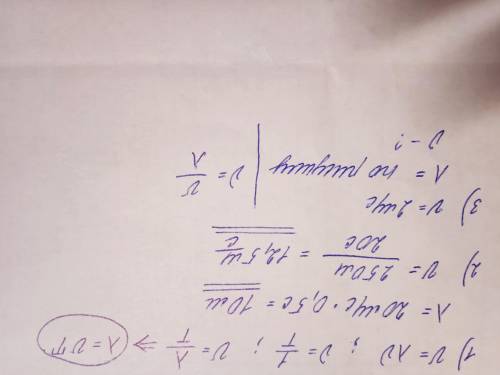 1) v = λν ; ν = 1/T ; v = λ/T ⇒ λ = vT
λ = 20 м/с · 0,5 с = 10 м
2) v = 250 м / 20 с = 12,5 м/с
3) v = 2 м/с
λ = по рисунку | ν = v/λ
ν - ?